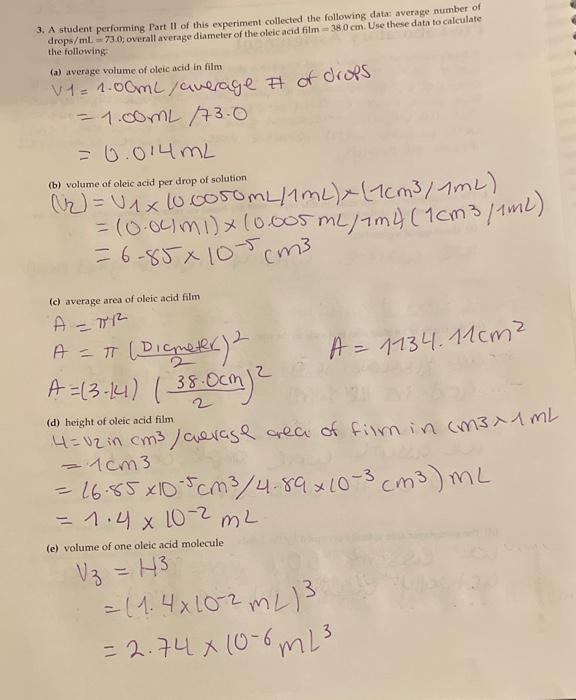 3. A student performing Part II of this experiment collected the following data: average number of
drops/mL = 73.0; overall average diameter of the oleic acid film = 38.0 cm. Use these data to calculate
the following:
(a) average volume of oleic acid in film
V1 = 1.00mL/average # of drops
= 1.00mL /73.0
= 0.014mL
(b) volume of oleic acid per drop of solution
(V2) = V1 x (0.0050mL/1mL) x (1cm3/1mL)
= (0.04ml) x (0.005mL/1ml) (1cm3/1mL)
= 6.85 x 10-5 cm3
(c) average area of oleic acid film
A = πr2
A = π (Diameter/2)2
A = 1134.11cm2
A = (3.14) (38.0cm/2)2
(d) height of oleic acid film
H = V2 in cm3 / average area of film in cm3 x 1mL
= 1cm3
= (6.85 x10-5cm3/4.89 x 10-3 cm3) mL
= 1.4 x 10-2 mL
(e) volume of one oleic acid molecule
V3 = H3
= (1.4x10-2 mL)3
= 2.74 x 10-6 mL3